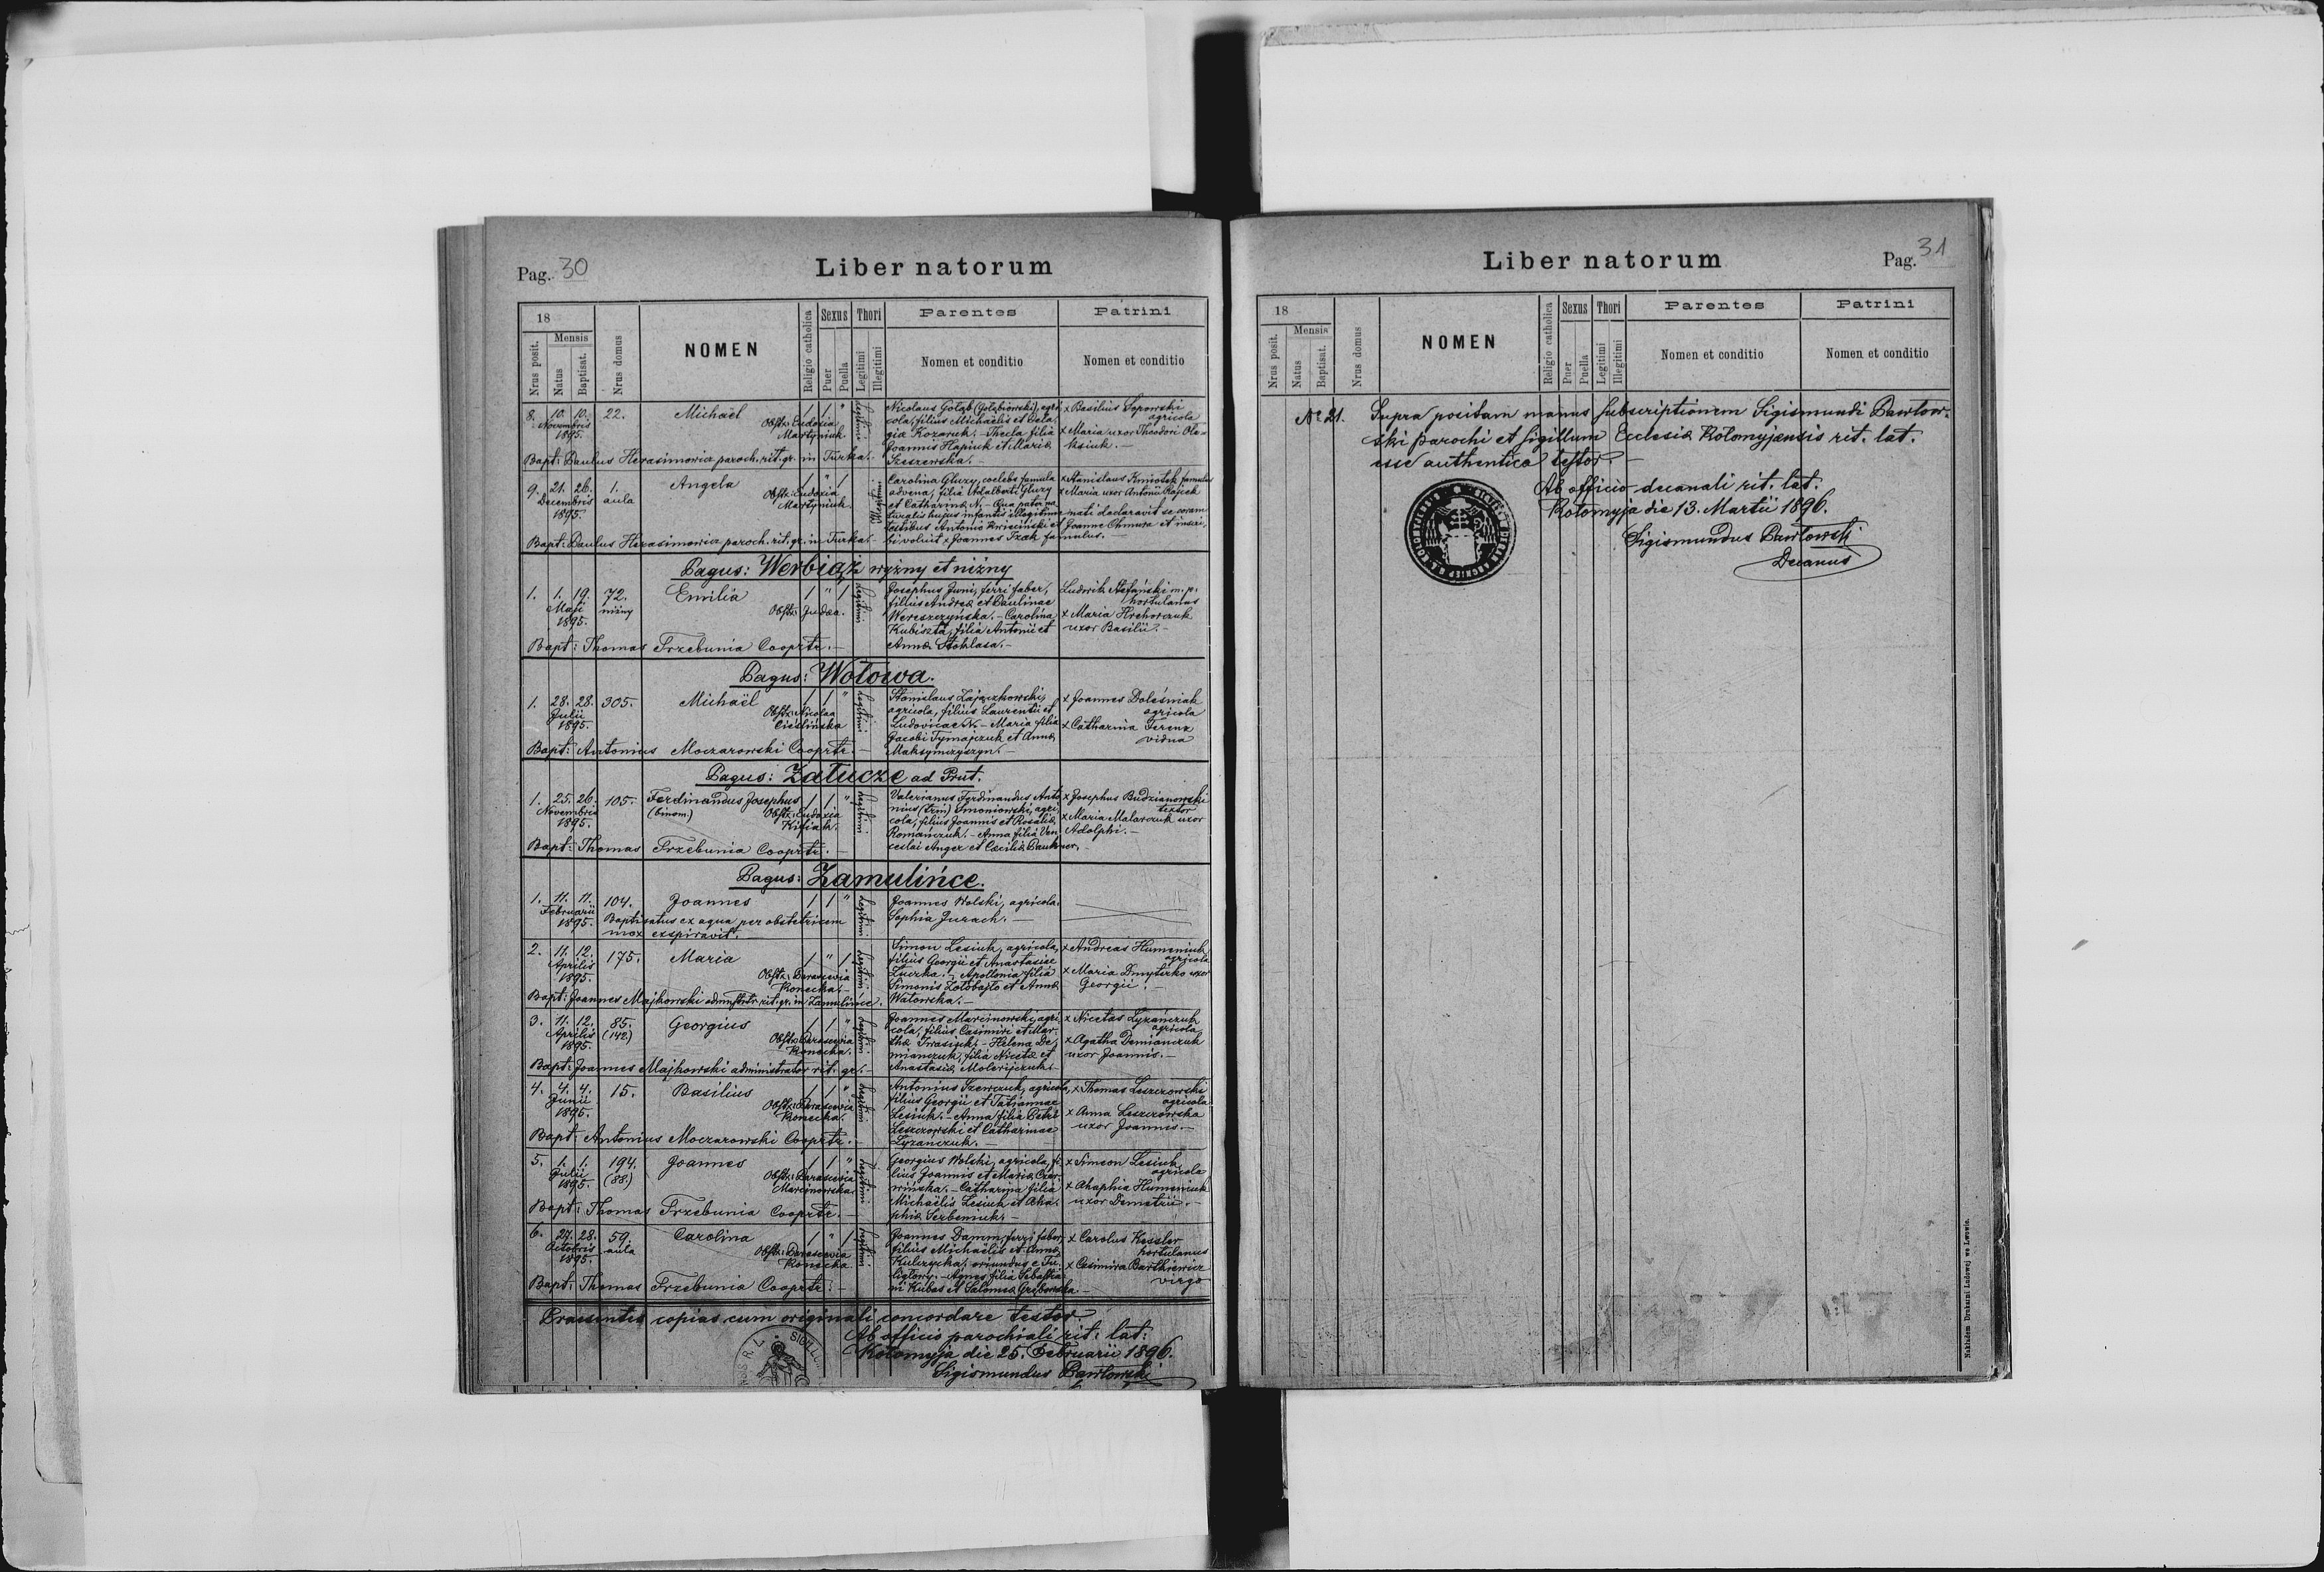 Pag. 30
Liber natorum
18
Nrus posit.
Mensis
Natus
Baptisat.
Nrus domus
NOMEN
Religio catholica
Sexus
Puer
Puella
Thori
Legitimi
Illegitimi
Parentes
Nomen et conditio
Patrini
Nomen et conditio
8. 10. 10. 22. Michaël 1 1 "
Novembris
1895.
Obstr: Eudoxia
Martyniuk.
legitimi
Nicolaus Gołąb (Gołębiowski), agri
cola, filius Michaëlis et Pela
giæ Kozaruk. - Thecla filia
Joannis Hapiuk et Mariæ
Szeszewska. -
x Basilius Sopowski
agricola
x Maria uxor Theodori Ole-
ksiuk. -
Bapt: Paulus Herasimowicz paroch. rit. gr. in Turka. -
9. 21. 26. 1. Angela 1 " 1
Decembris aula
1895.
Obstr: Eudoxia
Martyniuk.
Illegitimi
Carolina Gluzy, coelebs famula
advena, filia Adalberti Gluzy
et Catharinæ N. - Qua pater na
turalis hujus infantis illegitime nati declaravit se coram
testibus Antonio Kwieciński et Joanne Chmura et inscri-
bi voluit x Joannes Tzak famulus. -
x Stanislaus Kmiotek famulus
x Maria uxor Antonii Rajzek
Bapt: Paulus Herasimowicz paroch. rit. gr. in Turka. -
Pagus: Werbiąż wyżny et niżny
1. 1. 19. 72. Emilia 1 " 1
Maji niżny
1895.
Obstr: Judæa.
legitimi
Josephus Juni, ferri faber,
filius Andreæ et Paulinae
Wereszczyńska. - Carolina
Kubiszta, filia Antonii et
Annæ Stohlasa. -
Ludwik Stefański m. p.
hortulanus
x Maria Hrehorczuk
uxor Basilii. -
Bapt: Thomas Trzebunia Cooprtr. -
Pagus: Wołowa.
1. 28. 28. 305. Michaël 1 1 "
Julii
1895.
Obstr: Nicolaa
Cieślińska
legitimi
Stanislaus Zajączkowski,
agricola, filius Laurentii et
Ludovicae N. - Maria filia
Jacobi Tymajczuk et Annæ
Maksymczyszyn. -
x Joannes Doleśniak
agricola
x Catharina Ferenz
vidua
Bapt: Antonius Moczarowski Cooprtr. -
Pagus: Załucze ad Prut.
1. 25. 26. 105. Ferdinandus Josephus 1 1 "
Novembris (binom.)
1895.
Obstr: Eudoxia
Kifiak.
legitimi
Valerianus Ferdinandus Anto
nius (trin) Smoniowski, agri
cola, filius Joannis et Rosaliæ
Romańczuk. - Anna filia Ven
ceslai Anger et Cæciliæ Paukner. -
x Josephus Budzianowski
textor
x Maria Malarczuk uxor
Adolphi. -
Bapt: Thomas Trzebunia Cooprtr. -
Pagus: Zamulińce.
1. 11. 11. 104. Joannes 1 1 "
Februarii
1895. Baptisatus ex aqua per obstetricem
mox exspiravit. -
legitimi
Joannes Wolski, agricola.
Sophia Jurach. -
2. 11. 12. 175. Maria 1 " 1
Aprilis
1895.
Obstr: Parascevia
Konecka. -
legitimi
Simon Lesiuk, agricola,
filius Georgii et Anastasiae
Łuczka. - Apollonia filia
Simonis Zołobajło et Annæ
Watowska. -
x Andreas Humeniuk
agricola
x Maria Dmyterko uxor
Georgii. -
Bapt: Joannes Majkowski adminstrtr rit. gr. in Zamulińce.
3. 11. 12. 85. Georgius 1 1 "
Aprilis (142.)
1895.
Obstr: Parascevia
Konecka.
legitimi
Joannes Marcinowski, agri
cola, filius Casimiri et Mar
thæ Iwasiuk. - Helena De
mianczuk, filia Nicetæ et
Anastasiæ Molerijczuk. -
x Nicetas Łyzańczuk
agricola
x Agatha Demiańczuk
uxor Joannis. -
Bapt: Joannes Majkowski administrator rit. gr. -
4. 4. 4. 15. Basilius 1 1 "
Junii
1895.
Obstr: Parascevia
Konecka.
legitimi
Antonius Szewczuk, agricola,
filius Georgii et Tatiannae
Lesiuk. - Anna filia Petri
Leszczowski et Catharinae
Łyzańczuk. -
x Thomas Leszczowski
agricola
x Anna Leszczowska
uxor Joannis. -
Bapt: Antonius Moczarowski Cooprtr. -
5. 1. 1. 194. Joannes 1 1 "
Julii (88.)
1895.
Obstr: Parascevia
Marcinowska.
legitimi
Georgius Wolski, agricola, fi
lius Joannis et Mariæ Czer
wińska. - Catharina filia
Michaëlis Lesiuk et Aha-
phiæ Serbeniuk. -
x Simeon Lesiuk
agricola
x Ahaphia Humeniuk
uxor Demetrii. -
Bapt: Thomas Trzebunia Cooprtr. -
6. 27. 28. 59. Carolina 1 " 1
Octobris aula
1895.
Obstr: Parascevia
Konecka
legitimi
Joannes Damm, ferri faber,
filius Michaëlis et Annæ
Kulczycka, oriundus e Tu-
ligłowy. - Agnes filia Sebastia
ni Kubas et Salomeæ Grębowska. -
x Carolus Kessler
hortulanus
x Casimira Bartkiewicz
virgo
Bapt: Thomas Trzebunia Cooprtr. -
Praesentes copias cum originali concordare testor
Ab officio parochiali rit. lat:
Kołomyja die 25. Februarii 1896.
Sigismundus Pawłowski
Liber natorum
Pag. 31
18
Nrus posit.
Mensis
Natus
Baptisat.
Nrus domus
NOMEN
Religio catholica
Sexus
Puer
Puella
Thori
Legitimi
Illegitimi
Parentes
Nomen et conditio
Patrini
Nomen et conditio
No 21. Supra positam manus subscriptionem Sigismundi Pawłow-
ski parochi et sigillum Ecclesiæ Kołomyjensis rit. lat.
esse authentica testor. -
Ab officio decanali rit. lat.
Kołomyja die 13. Martii 1896.
Sigismundus Pawłowski
Decanus
Nakładem Drukarni Ludowej we Lwowie.